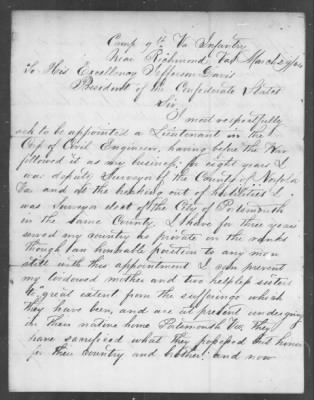 Camp 9th Va Infantry
Near Richmond Va March 29/64
To His Excellency Jefferson Davis
President of the Confederate States
Sir,
I most respectfully
ask to be appointed a Lieutenant in the
Corp of Civil Engineers, having before the War
followed it as my business for eight years I
was deputy Surveyor of the County of Norfolk
Va. and at the breaking out of hostilities I
was Surveyor elect of the City of Portsmouth
in the same County. I have for three years
served my country as private in the ranks
though an honorable position to any man
still with this appointment I can prevent
my widowed mother and two helpless sisters
to great extent from the sufferings which
they have been, and are at present undergoing
in their native home Portsmouth Va. They
have sacrificed what they possessed but honor
for their country and brother: and now